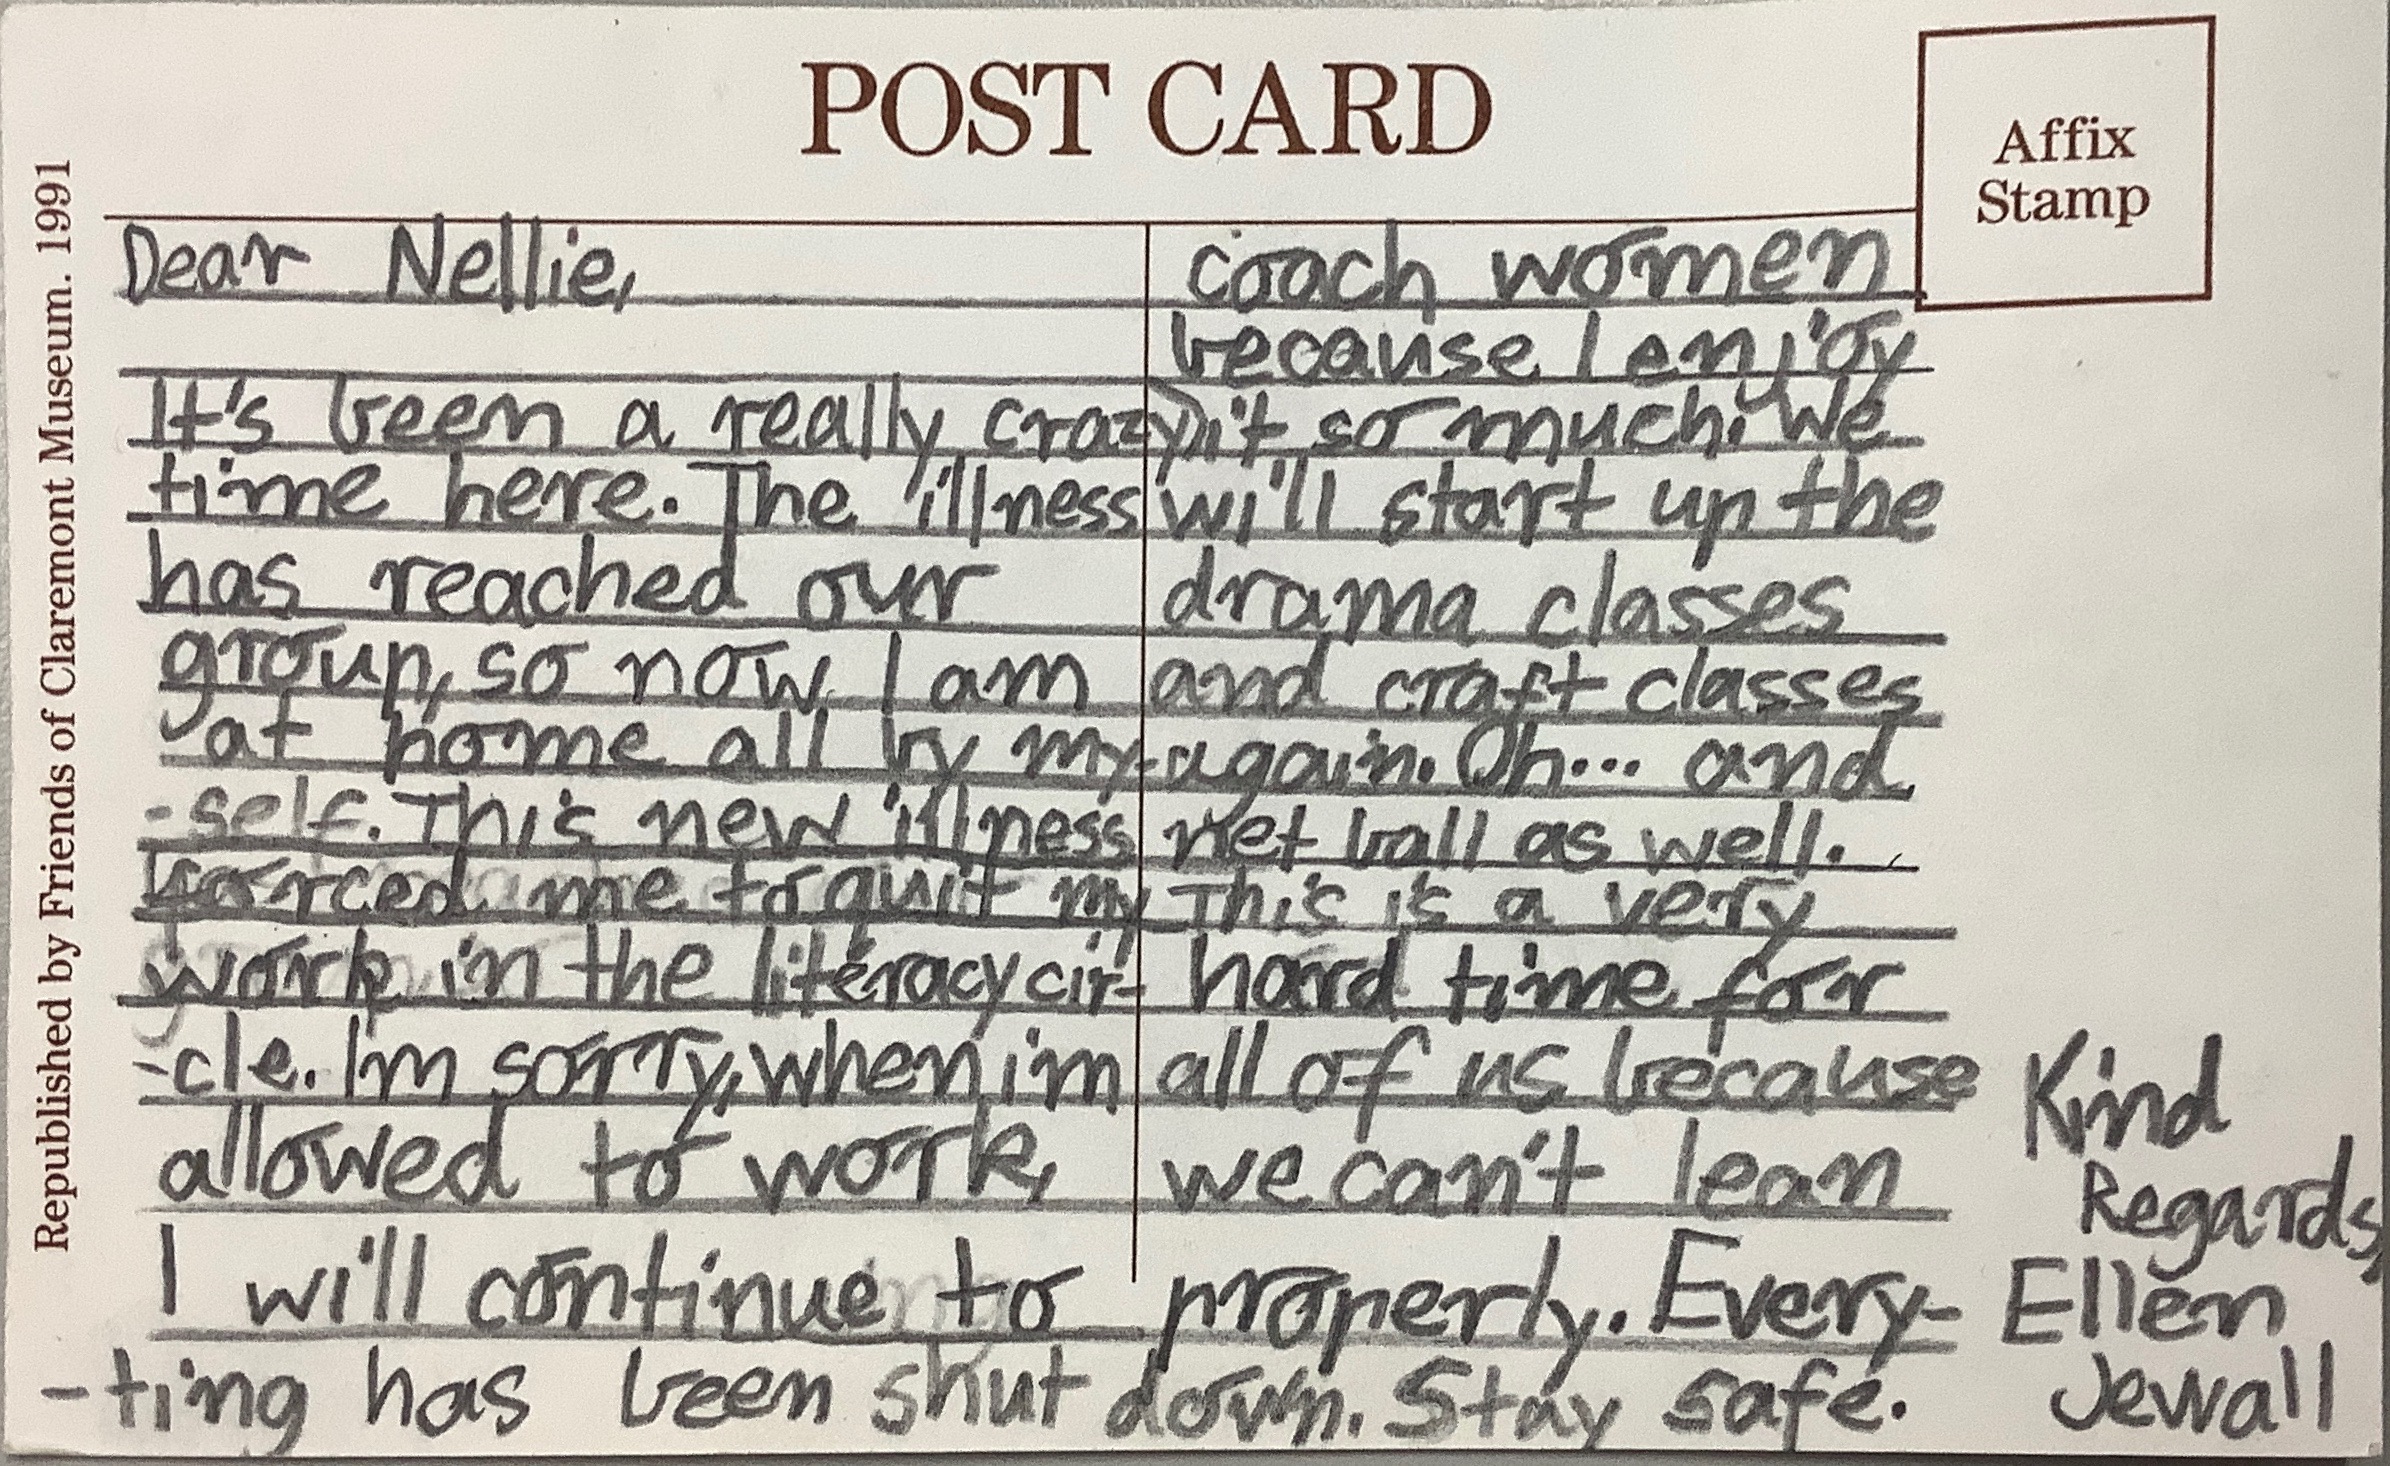 POST CARD
Affix
Stamp
Republished by Friends of Claremont Museum. 1991
Dear Nellie,
It's been a really crazy
time here. The illness
has reached our
group, so now I am
at home all by my-
-self. This new illness
forced me to quit my
work in the literacy cir-
-cle. Im sorry, when i'm
allowed to work,
I will continue to
coach women
because I enjoy
it so much. We
will start up the
drama classes
and craft classes
again. Oh... and
net ball as well.
This is a very
hard time for
all of us because
we can't lean
properly. Every-
-ting has been shut down. Stay safe.
Kind
Regards,
Ellen
Jewall